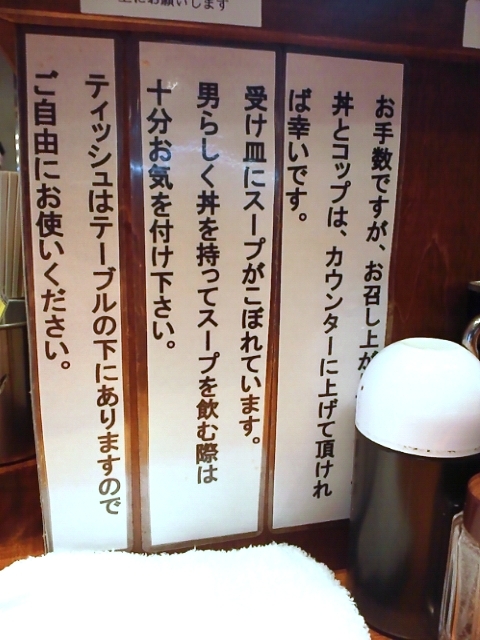 上にお願いします
お手数ですが、お召し上が
丼とコップは、カウンターに上げて頂けれ
ば幸いです。
受け皿にスープがこぼれています。
男らしく丼を持ってスープを飲む際は
十分お気を付け下さい。
ティッシュはテーブルの下にありますので
ご自由にお使いください。